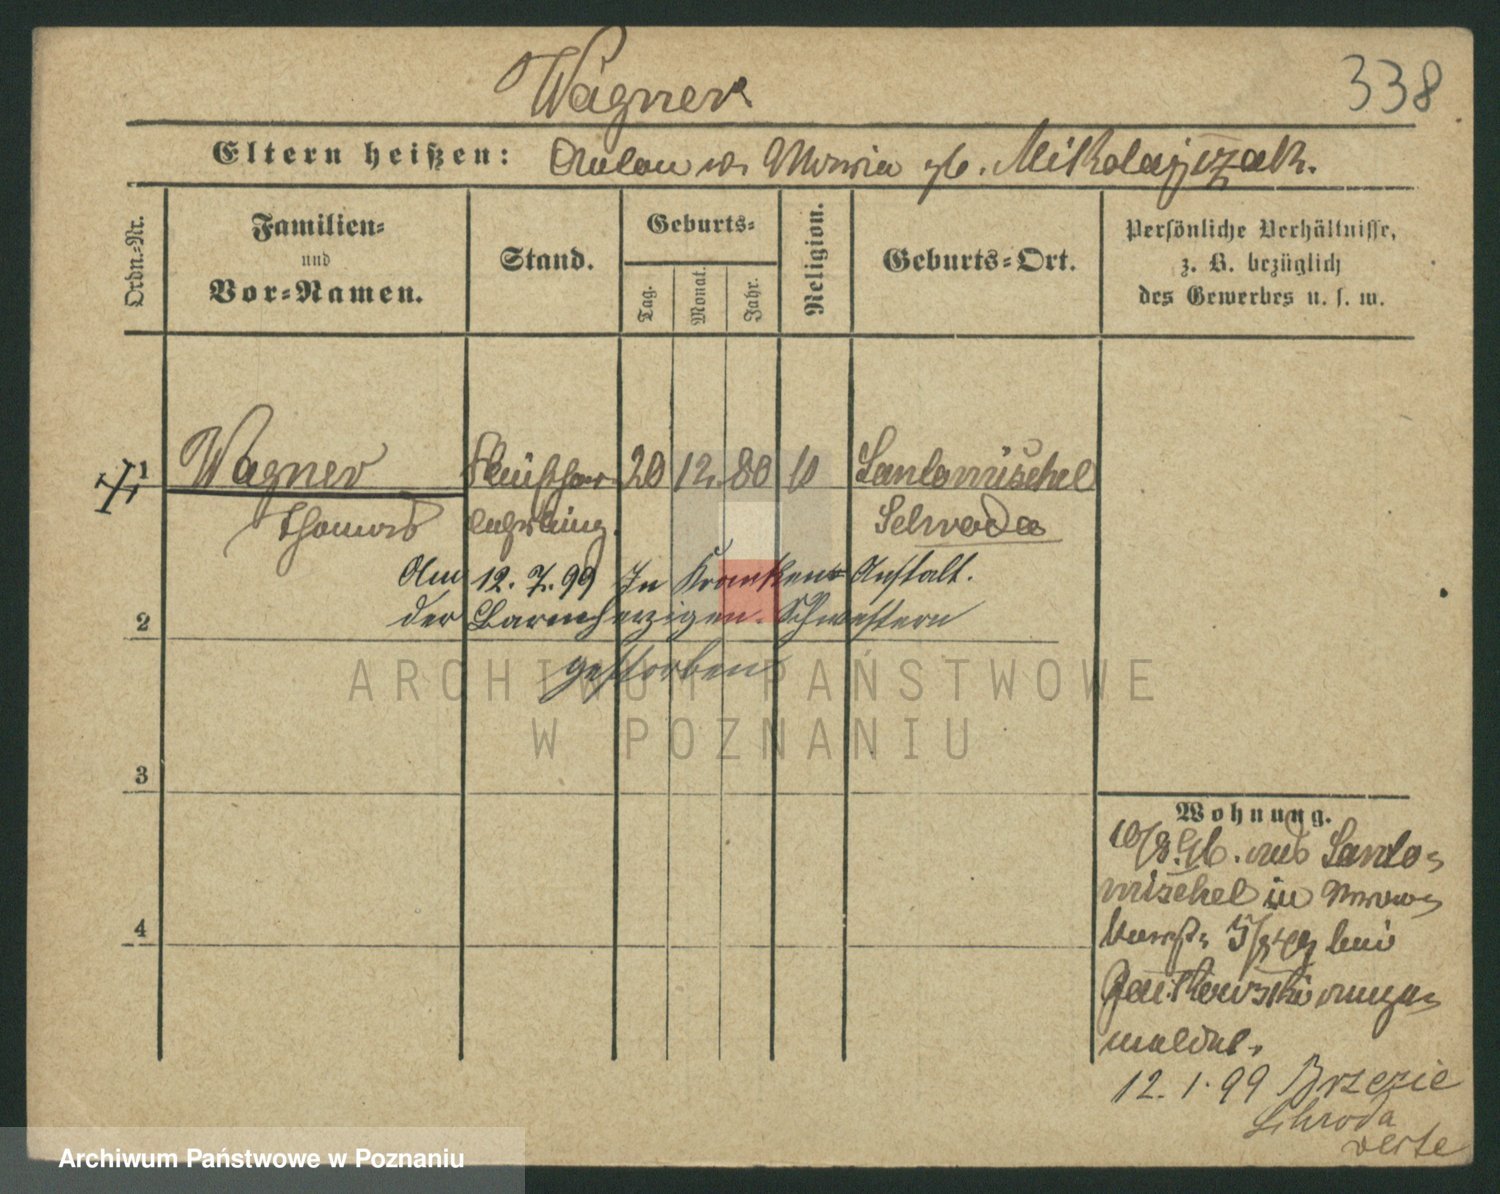 Wagner
338
Eltern heißen: Anton u. Maria gb. Mikolajczak.
Ordn.-Nr.
Familien-
und
Vor-Namen.
Stand.
Geburts-
Tag.
Monat.
Jahr.
Religion.
Geburts-Ort.
Persönliche Verhältnisse,
z. B. bezüglich
des Gewerbes u. s. w.
1 Wagner 20 12. 80 Santomischel
Thomas lehrling. Schroda
Am 12. 7. 99 In Kranken Anstalt.
der Barmherzigen Schwestern
2
gestorben
3
4
Wohnung.
10/8. 96. aus Santo-
mischel in
bei
ange-
meldet.
12. 1. 99 Brzezie
Schroda
verte
ARCHIWUM PAŃSTWOWE
W POZNANIU
Archiwum Państwowe w Poznaniu